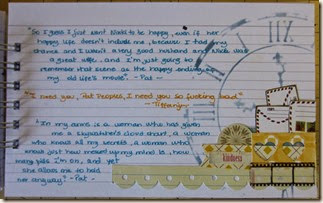 "So I guess I just want Nikki to be happy, even if her
happy life doesn't include me, because I had my
chance and I wasn't a very good husband and Nikki was
a great wife, and I'm just going to
remember that scene as the happy ending of
my old life's movie." -Pat-
"I need you, Pat Peoples, I need you so fucking bad"
-Tiffany-
"In my arms is a woman who has given
me a skywatcher's cloud chart, a woman
who knows all my secrets, a woman who
knows just how messed up my mind is, how
many pills I'm on, and yet
she allows me to hold
her anyway." -Pat-
XII
kindness